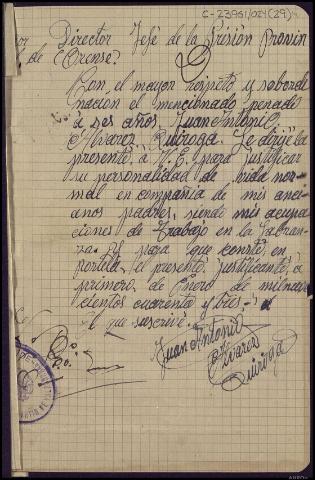 C-23961/024 (29)
Director Jefe de la Prisión Provin
de Orense?
Con, el mayor respeto y subordi
nacion el mencionado penado
a seis años, Juan Antonio,
Alvarez, Quiroga. Se dirije la
presente, a V. E. para justificar
su personalidad de vida nor-
mal en compañia de mis anci-
anos padres, siendo mis acupa
ciones de trabajo en la labran-
za. Y para que conste, en
el presente justificante, a
primero de Enero de mil nove
cientos cuarenta y tres.-
El que suscrive
Juan Antonio
Alvarez
Quiroga
Vº. Bº.